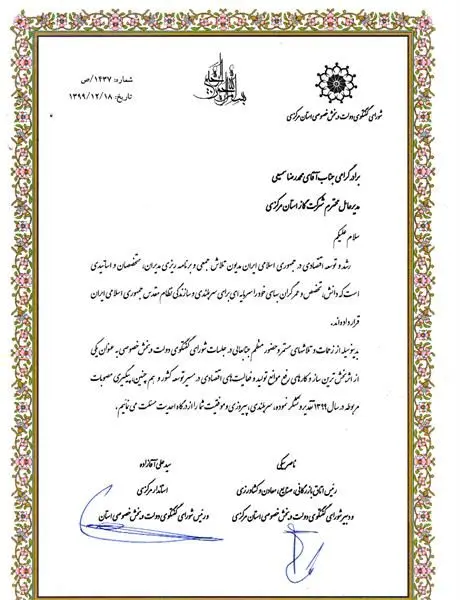 شماره: ۱۴۳۷/ص
تاریخ: ۱۳۹۹/۱۲/۱۸
شورای گفتگوی دولت و بخش خصوصی استان مرکزی
برادر گرامی جناب آقای محمدرضا سمیعی
مدیرعامل محترم شرکت گاز استان مرکزی
سلام علیکم
رشد و توسعه اقتصادی در جمهوری اسلامی ایران مدیون تلاش جمعی و برنامه ریزی مدیران، متخصصان و اساتیدی
است که دانش، تخصص و عمر گران بهای خود را سرمایه ای برای سربلندی و سازندگی نظام مقدس جمهوری اسلامی ایران
قرار داده اند.
بدینوسیله از زحمات و تلاشهای مستمر و حضور منظم جنابعالی در جلسات شورای گفتگوی دولت و بخش خصوصی به عنوان یکی
از اثربخش ترین ساز و کارهای رفع موانع تولید و فعالیت های اقتصادی در مسیر توسعه کشور و هم چنین، پیگیری مصوبات
مربوطه در سال ۱۳۹۹ تقدیر و تشکر نموده، سربلندی، پیروزی و موفقیت شما را از درگاه احدیت مسئلت می نمایم.
ناصر بیکی
رئیس اتاق بازرگانی، صنایع، معادن و کشاورزی
و دبیر شورای گفتگوی دولت و بخش خصوصی استان مرکزی
سید علی آقازاده
استاندار مرکزی
و رئیس شورای گفتگوی دولت و بخش خصوصی استان